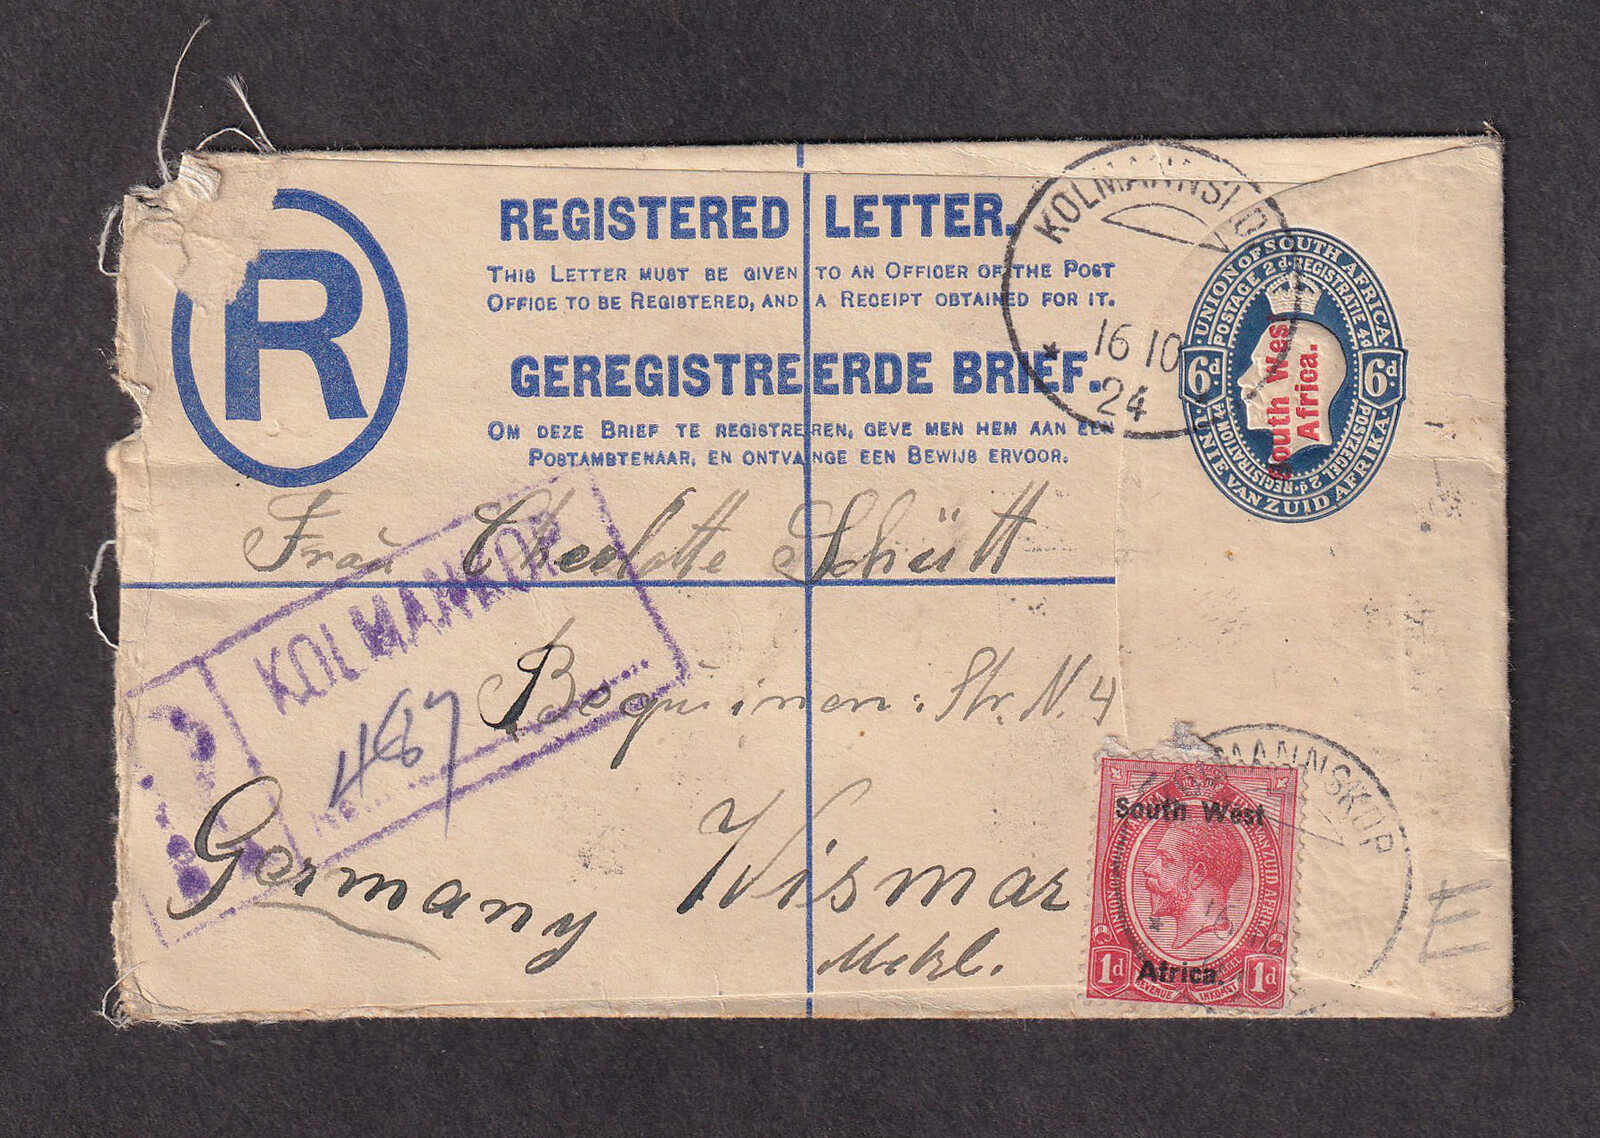 R
REGISTERED LETTER.
THIS LETTER MUST BE GIVEN TO AN OFFICER OF THE POST
OFFICE TO BE REGISTERED, AND A RECEIPT OBTAINED FOR IT.
GEREGISTREERDE BRIEF.
OM DEZE BRIEF TE REGISTREREN, GEVE MEN HEM AAN EEN
POSTAMBTENAAR, EN ONTVANGE EEN BEWIJS ERVOOR.
16 10
24
UNION OF SOUTH AFRICA
POSTAGE 2d. REGISTRATIE 4d
6d. 6d.
POSTZEGEL 2d. REGISTRATION 4d
UNIE VAN ZUID AFRIKA
South West
Africa.
Frau Charlotte Schütt
Bequinen: Str. N. 4
Wismar
Mekl.
Germany
KOLMANKOP
No.
467
South West
Africa.
1d 1d
REVENUE INKOMST
VAN ZUID AFRIKA
MANNSKOP
E